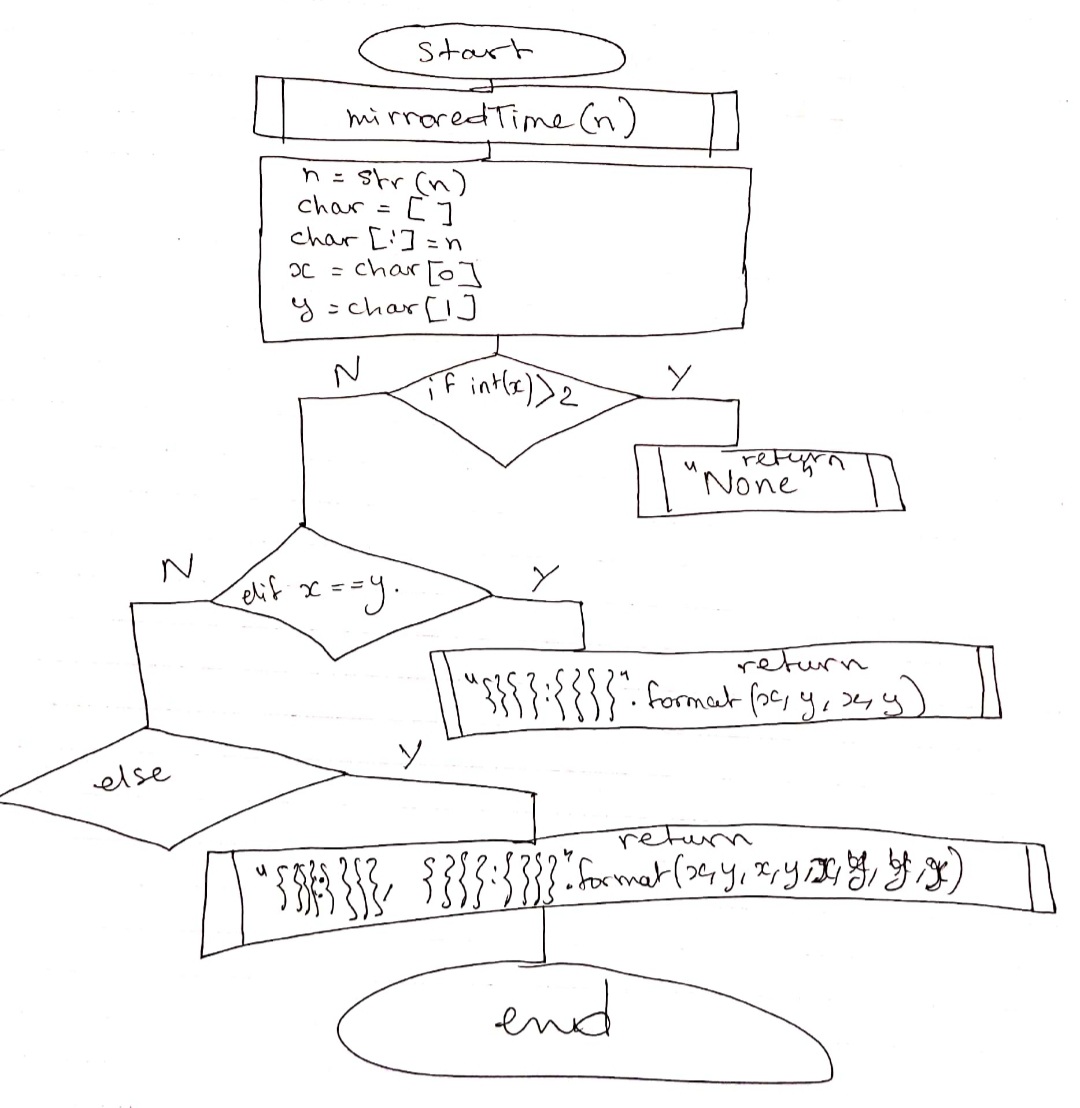 Start
mirroredTime(n)
n = str(n)
char = [ ]
char [:] = n
x = char[0]
y = char[1]
N
if int(x)>2
Y
return
"None"
N
elif x==y.
Y
return
"{}{}:{}{}".format(x, y, x, y)
else
Y
return
"{}{}:{}{}, {}{}:{}{}".format(x, y, x, y,
end